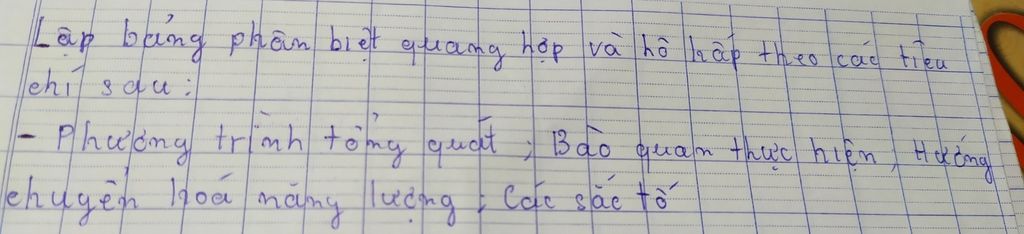 Lập bảng phân biệt quang hợp và hô hấp theo các tiêu
chí sau:
- Phương trình tổng quát; Bào quan thực hiện, Hướng
chuyển hoá năng lượng; Các sắc tố